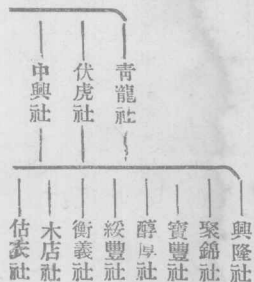 青龍社
伏虎社
中興社
興隆社
聚錦社
寶豐社
醇厚社
綏豐社
衡義社
木店社
估衣社